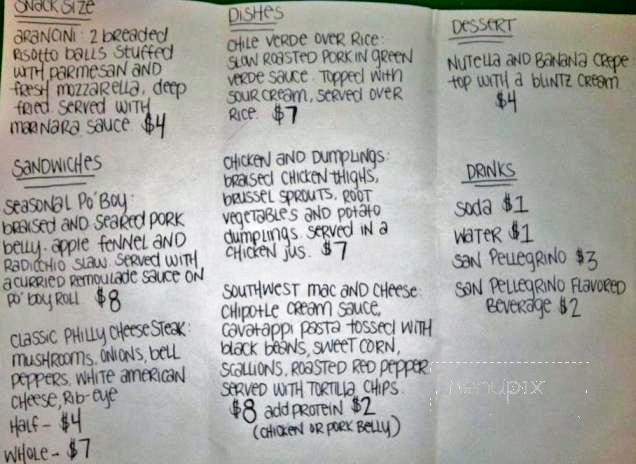 Snack Size
Arancini: 2 breaded
risotto balls stuffed
with parmesan and
fresh mozzarella, deep
fried. Served with
marinara sauce $4
Sandwiches
Seasonal Po' Boy:
braised and seared pork
belly. apple fennel and
radicchio slaw. Served with
a curried remoulade sauce on
po' boy roll $8
Classic Philly Cheesesteak:
mushrooms, onions, bell
peppers, white american
cheese, rib-eye
Half - $4
Whole - $7
Dishes
Chile Verde over Rice:
slow roasted pork in green
verde sauce. Topped with
sour cream, served over
rice $7
Chicken and Dumplings:
braised chicken thighs,
brussel sprouts, root
vegetables and potato
dumplings. Served in a
chicken jus. $7
Southwest Mac and Cheese:
Chipotle cream sauce,
cavatappi pasta tossed with
black beans, sweet corn,
scallions, roasted red pepper.
Served with tortilla chips.
$8 add protein $2
(chicken or pork belly)
Dessert
Nutella and Banana Crepe:
top with a blintz cream
$4
Drinks
Soda $1
Water $1
San Pellegrino $3
San Pellegrino Flavored
Beverage $2
menupix